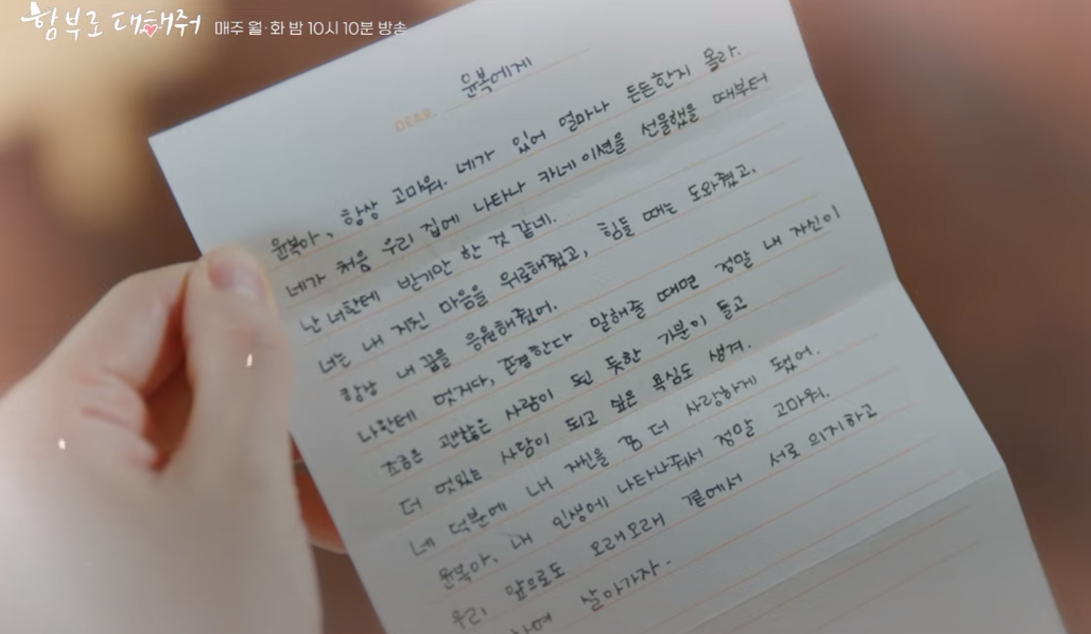 함부로 대해줘
매주 월·화 밤 10시 10분 방송
DEAR. 윤복에게
윤복아, 항상 고마워. 네가 있어 얼마나 든든한지 몰라.
네가 처음 우리 집에 나타나 카네이션을 선물했을 때부터
난 너한테 받기만 한 것 같네.
너는 내 지친 마음을 위로해줬고, 힘들 때는 도와줬고,
항상 내 꿈을 응원해줬어.
나한테 멋지다, 존경한다 말해줄 때면 정말 내 자신이
조금은 괜찮은 사람이 된 듯한 기분이 들고
더 멋있는 사람이 되고 싶은 욕심도 생겨.
네 덕분에 내 자신을 좀 더 사랑하게 됐어.
윤복아, 내 인생에 나타나줘서 정말 고마워.
우리 앞으로도 오래오래 곁에서 서로 의지하고
살아가자.